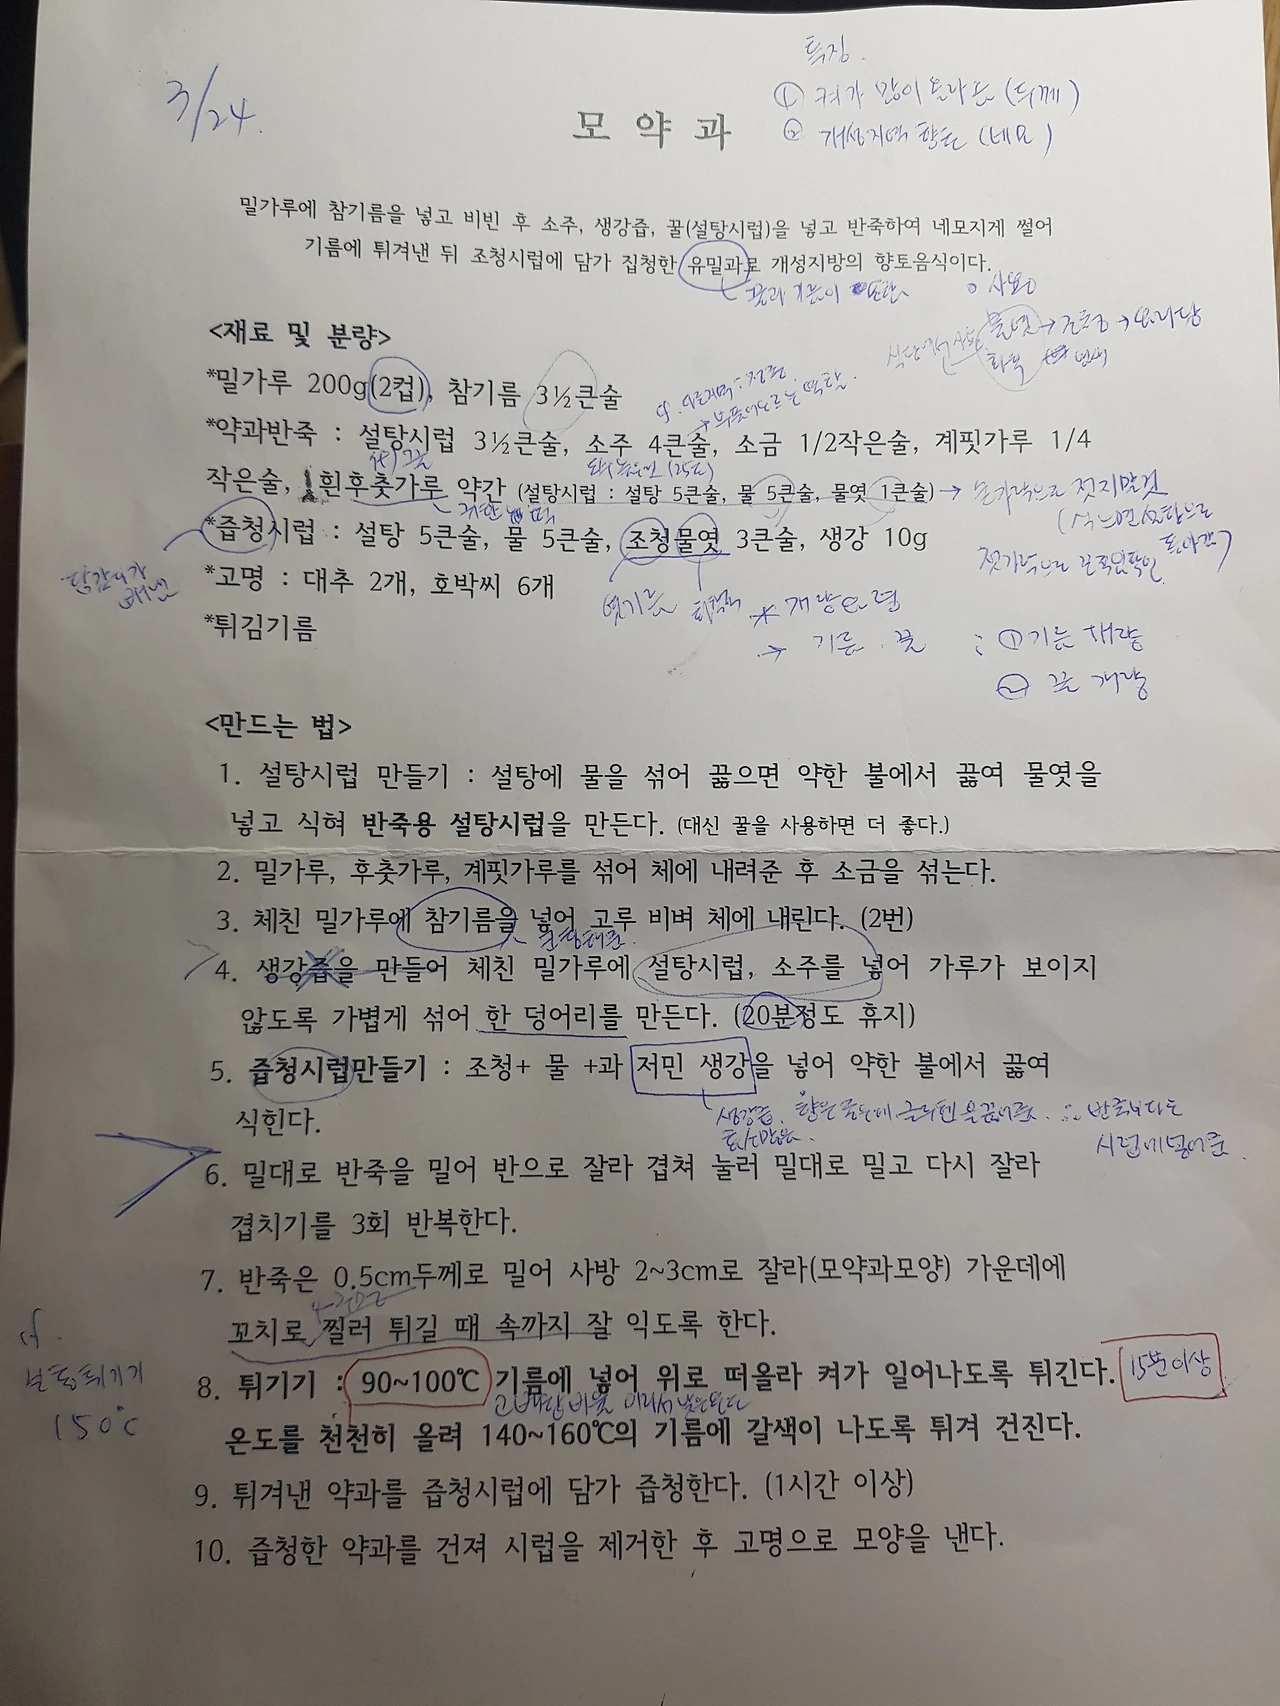 3/24.
특징.
① 켜가 많이 올라온 (두께)
② 개성지역 향토 (네모)
모 약 과
밀가루에 참기름을 넣고 비빈 후 소주, 생강즙, 꿀(설탕시럽)을 넣고 반죽하여 네모지게 썰어
기름에 튀겨낸 뒤 조청시럽에 담가 집청한 유밀과로 개성지방의 향토음식이다.
꿀과 기름이
<재료 및 분량>
물엿 → 조청 →
*밀가루 200g(2컵), 참기름 3½큰술
*약과반죽 : 설탕시럽 3½큰술, 소주 4큰술, 소금 1/2작은술, 계핏가루 1/4
작은술, 흰후춧가루 약간 (설탕시럽 : 설탕 5큰술, 물 5큰술, 물엿 1큰술) → 손가락으로 젓지말것
*즙청시럽 : 설탕 5큰술, 물 5큰술, 조청물엿 3큰술, 생강 10g
젓가락으로
*고명 : 대추 2개, 호박씨 6개
엿기름
* 개량
*튀김기름
→ 기름 . 꿀 : ① 기름 계량
② 꿀 계량
<만드는 법>
1. 설탕시럽 만들기 : 설탕에 물을 섞어 끓으면 약한 불에서 끓여 물엿을
넣고 식혀 반죽용 설탕시럽을 만든다. (대신 꿀을 사용하면 더 좋다.)
2. 밀가루, 후춧가루, 계핏가루를 섞어 체에 내려준 후 소금을 섞는다.
3. 체친 밀가루에 참기름을 넣어 고루 비벼 체에 내린다. (2번)
4. 생강즙을 만들어 체친 밀가루에 설탕시럽, 소주를 넣어 가루가 보이지
않도록 가볍게 섞어 한 덩어리를 만든다. (20분정도 휴지)
5. 즙청시럽만들기 : 조청+ 물 +과 저민 생강을 넣어 약한 불에서 끓여
식힌다.
생강즙
∴ 반죽보다는
시럽에 넣어준
6. 밀대로 반죽을 밀어 반으로 잘라 겹쳐 눌러 밀대로 밀고 다시 잘라
겹치기를 3회 반복한다.
7. 반죽은 0.5cm두께로 밀어 사방 2~3cm로 잘라(모약과모양) 가운데에
꼬치로 찔러 튀길 때 속까지 잘 익도록 한다.
cf.
보통튀기기
150℃
8. 튀기기 : 90~100℃ 기름에 넣어 위로 떠올라 켜가 일어나도록 튀긴다. 15분이상
온도를 천천히 올려 140~160℃의 기름에 갈색이 나도록 튀겨 건진다.
9. 튀겨낸 약과를 즙청시럽에 담가 즙청한다. (1시간 이상)
10. 즙청한 약과를 건져 시럽을 제거한 후 고명으로 모양을 낸다.